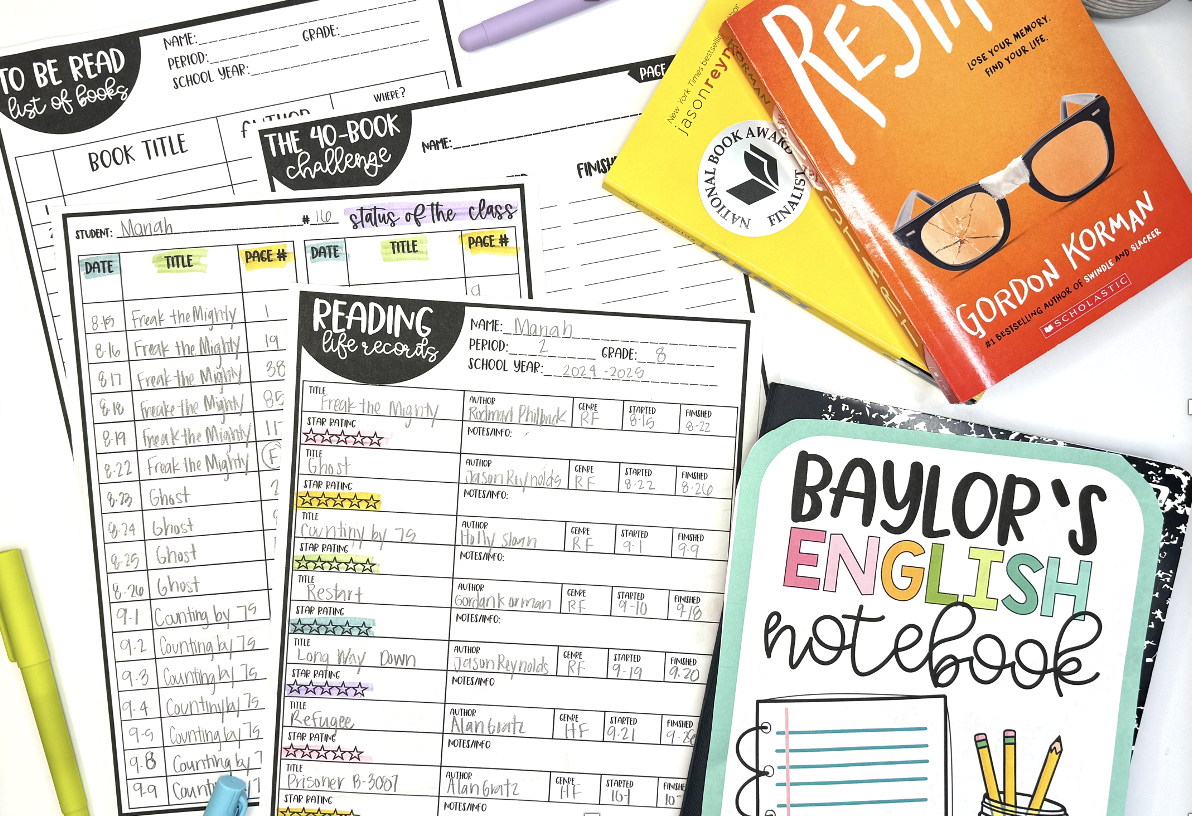 TO BE READ
list of books
NAME:
GRADE:
PERIOD:
SCHOOL YEAR:
BOOK TITLE
AUTHOR
WHERE?
THE 40-BOOK
challenge
NAME:
PAGE
STUDENT: Mariah
#16
status of the class
DATE TITLE PAGE # DATE TITLE PAGE #
8-15 Freak the Mighty 1
8-16 Freak the Mighty 19
8-17 Freak the Mighty 38
8-18 Freake the Mighty 85
8-19 Freak the Mighty
8-22 Freak the Mighty F
8-23 Ghost
8-24 Ghost
8-25 Ghost
8-26 Ghost
9-1 Counting by 7s
9-2 Counting by 7s
9-3 Counting by 7s
9-4 Counting by 7s
9-5 Counting by 7s
9-8 Counting by 7
9-9
READING
life records
NAME: Mariah
PERIOD: 2 GRADE: 8
SCHOOL YEAR: 2024-2025
TITLE AUTHOR GENRE STARTED FINISHED
Freak the Mighty Rodman Philbrick RF 8-15 8-22
STAR RATING NOTES/INFO:
TITLE AUTHOR GENRE STARTED FINISHED
Ghost Jason Reynolds RF 8-22 8-26
STAR RATING NOTES/INFO:
TITLE AUTHOR GENRE STARTED FINISHED
Counting by 7s Holly Sloan RF 9-1 9-9
STAR RATING NOTES/INFO:
TITLE AUTHOR GENRE STARTED FINISHED
Restart Gordan Korman RF 9-10 9-18
STAR RATING NOTES/INFO:
TITLE AUTHOR GENRE STARTED FINISHED
Long Way Down Jason Reynolds RF 9-19 9-20
STAR RATING NOTES/INFO
TITLE AUTHOR GENRE STARTED FINISHED
Refugee Alan Gratz HF 9-21
STAR RATING NOTES/INFO:
TITLE AUTHOR GENRE STARTED
Prisoner B-3087 Alan Gratz HF
STAR RATING NOTES/INFO
New York Times bestselling
jason reyn
NATIONAL BOOK AWARD
FINALIST
LOSE YOUR MEMORY.
FIND YOUR LIFE.
GORDON KORMAN
#1 BESTSELLING AUTHOR OF SWINDLE AND SLACKER
SCHOLASTIC
BAYLOR'S
ENGLISH
notebook